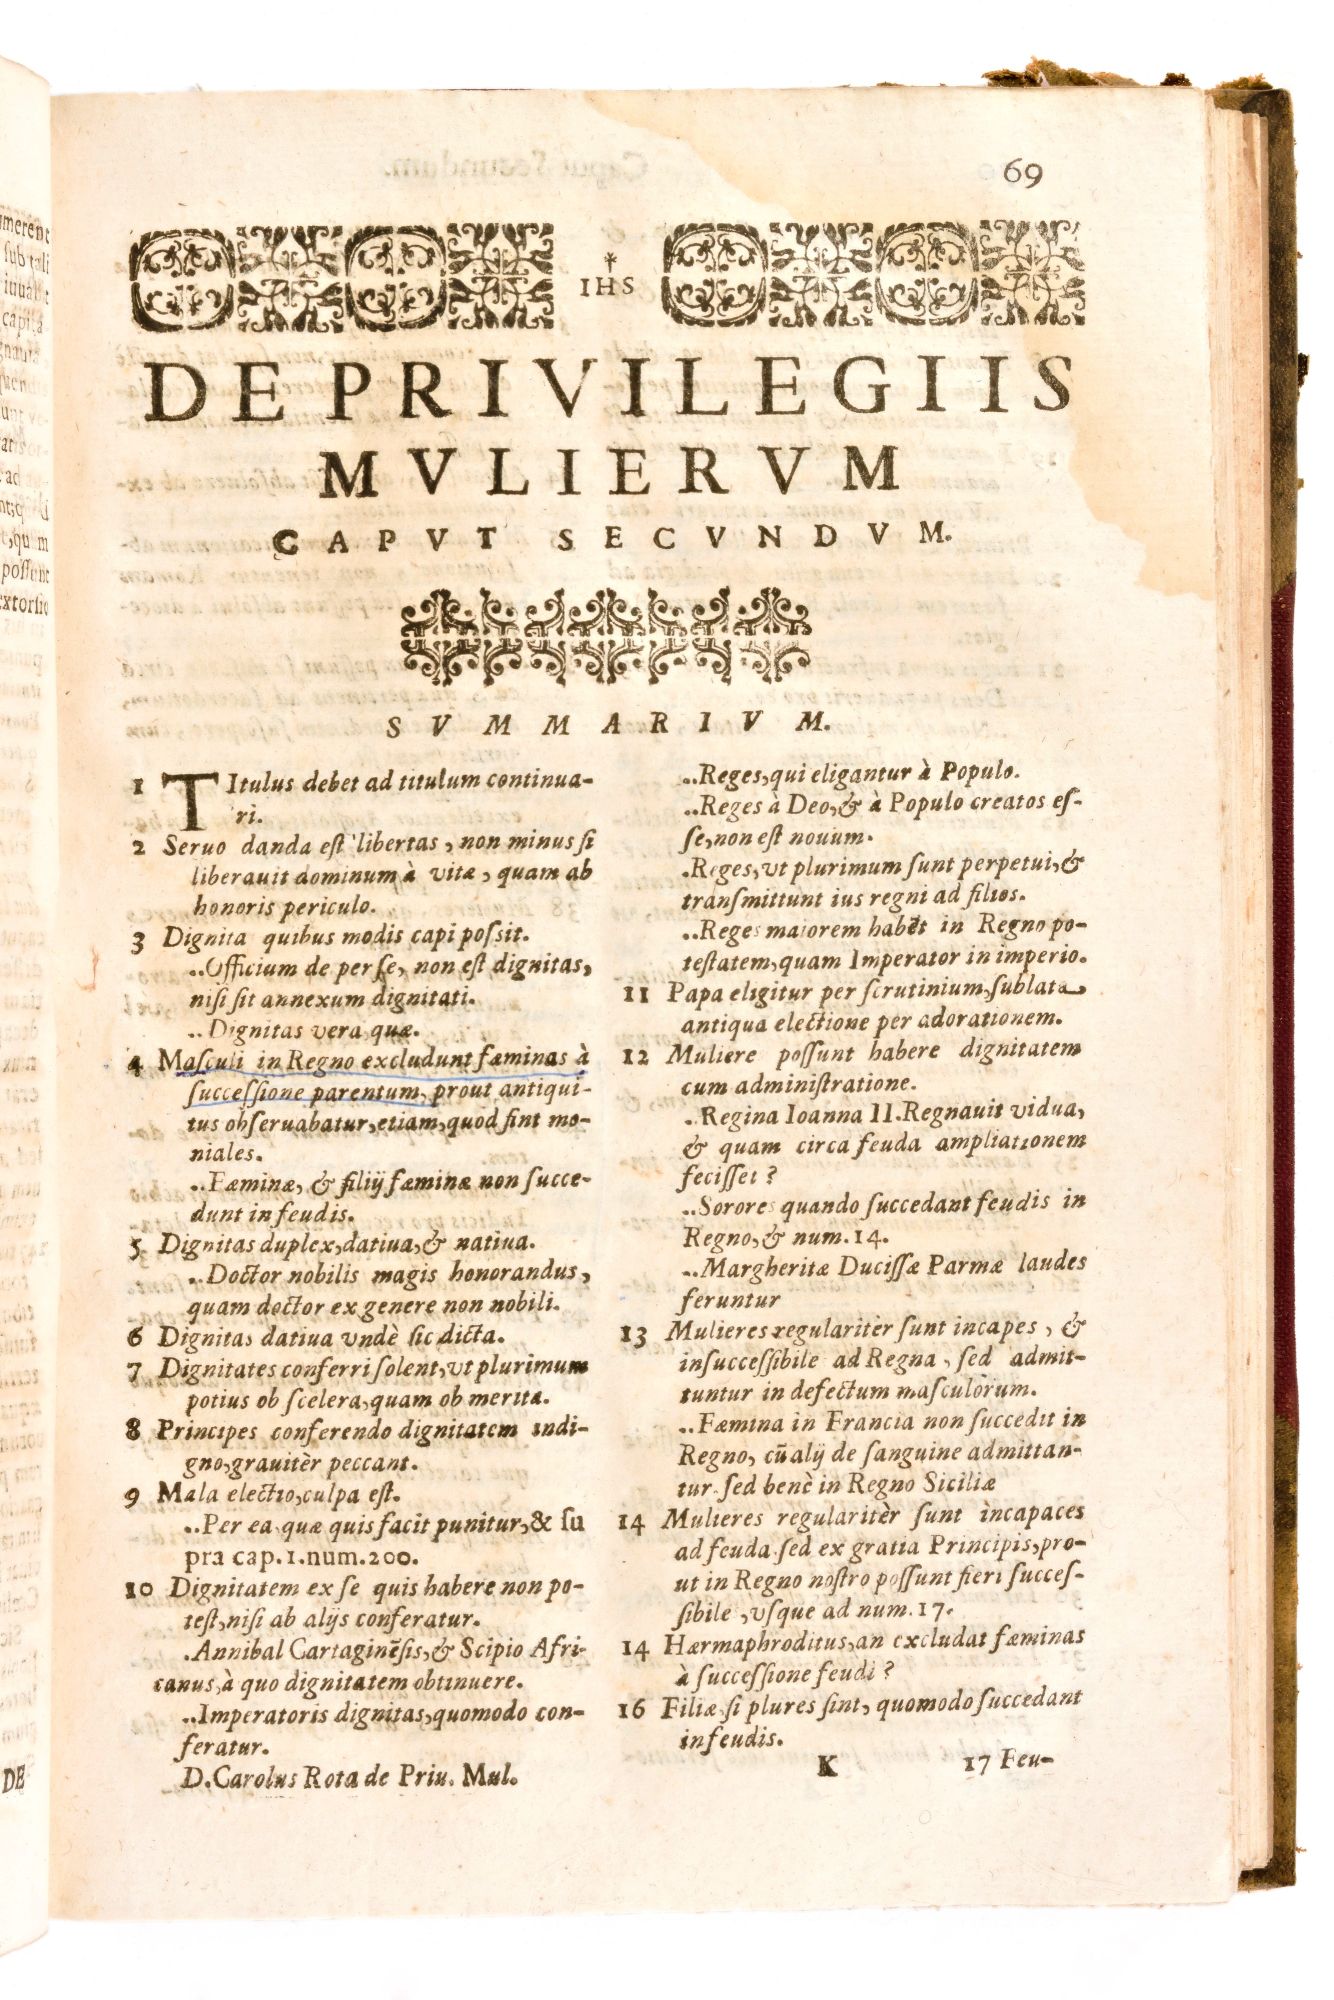 69
IHS
DE PRIVILEGIIS
MVLIERVM
CAPVT SECVNDVM.
SVMMARIVM.
1 TItulus debet ad titulum continua-
ri.
2 Seruo danda est libertas, non minus si
liberauit dominum à vitæ, quam ab
honoris periculo.
3 Dignita quibus modis capi possit.
..Officium de per se, non est dignitas,
nisi sit annexum dignitati.
..Dignitas vera quæ.
4 Masculi in Regno excludunt fæminas à
successione parentum, prout antiqui-
tus obseruabatur, etiam, quod sint mo-
niales.
..Fæminæ, & filij fæminæ non succe-
dunt in feudis.
5 Dignitas duplex, datiua, & natiua.
..Doctor nobilis magis honorandus,
quam doctor ex genere non nobili.
6 Dignitas datiua vndè sic dicta.
7 Dignitates conferri solent, vt plurimum
potius ob scelera, quam ob merita.
8 Principes conferendo dignitatem indi-
gno, grauitèr peccant.
9 Mala electio, culpa est.
..Per ea quæ quis facit punitur, & su
pra cap. 1. num. 200.
10 Dignitatem ex se quis habere non po-
test, nisi ab alijs conferatur.
.Annibal Cartaginẽsis, & Scipio Afri-
canus, à quo dignitatem obtinuere.
..Imperatoris dignitas, quomodo con-
feratur.
D. Carolus Rota de Priu. Mul.
..Reges, qui eligantur à Populo.
..Reges à Deo, & à Populo creatos es-
se, non est nouum.
.Reges, vt plurimum sunt perpetui, &
transmittunt ius regni ad filios.
..Reges maiorem habẽt in Regno po-
testatem, quam Imperator in imperio.
11 Papa eligitur per scrutinium, sublata
antiqua electione per adorationem.
12 Muliere possunt habere dignitatem
cum administratione.
..Regina Ioanna II. Regnauit vidua,
& quam circa feuda ampliationem
fecisset?
..Sorores quando succedant feudis in
Regno, & num. 14.
..Margheritæ Ducissæ Parmæ laudes
feruntur
13 Mulieres regularitèr sunt incapes, &
insuccessibile ad Regna, sed admit-
tuntur in defectum masculorum.
..Fæmina in Francia non succedit in
Regno, cũ alij de sanguine admittan-
tur. sed benè in Regno Siciliæ
14 Mulieres regularitèr sunt incapaces
ad feuda. sed ex gratia Principis, pro-
ut in Regno nostro possunt fieri succes-
sibile, vsque ad num. 17.
14 Hærmaphroditus, an excludat fæminas
à successione feudi?
16 Filiæ si plures sint, quomodo succedant
in feudis.
K 17 Feu-